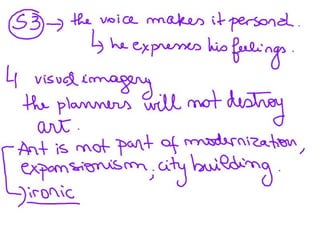 S3 → the voice makes it personal.
↳ he expresses his feelings.
↳ visual imagery
the planners will not destroy
art.
Art is not part of modernization,
expansionism, city building.
→ ironic